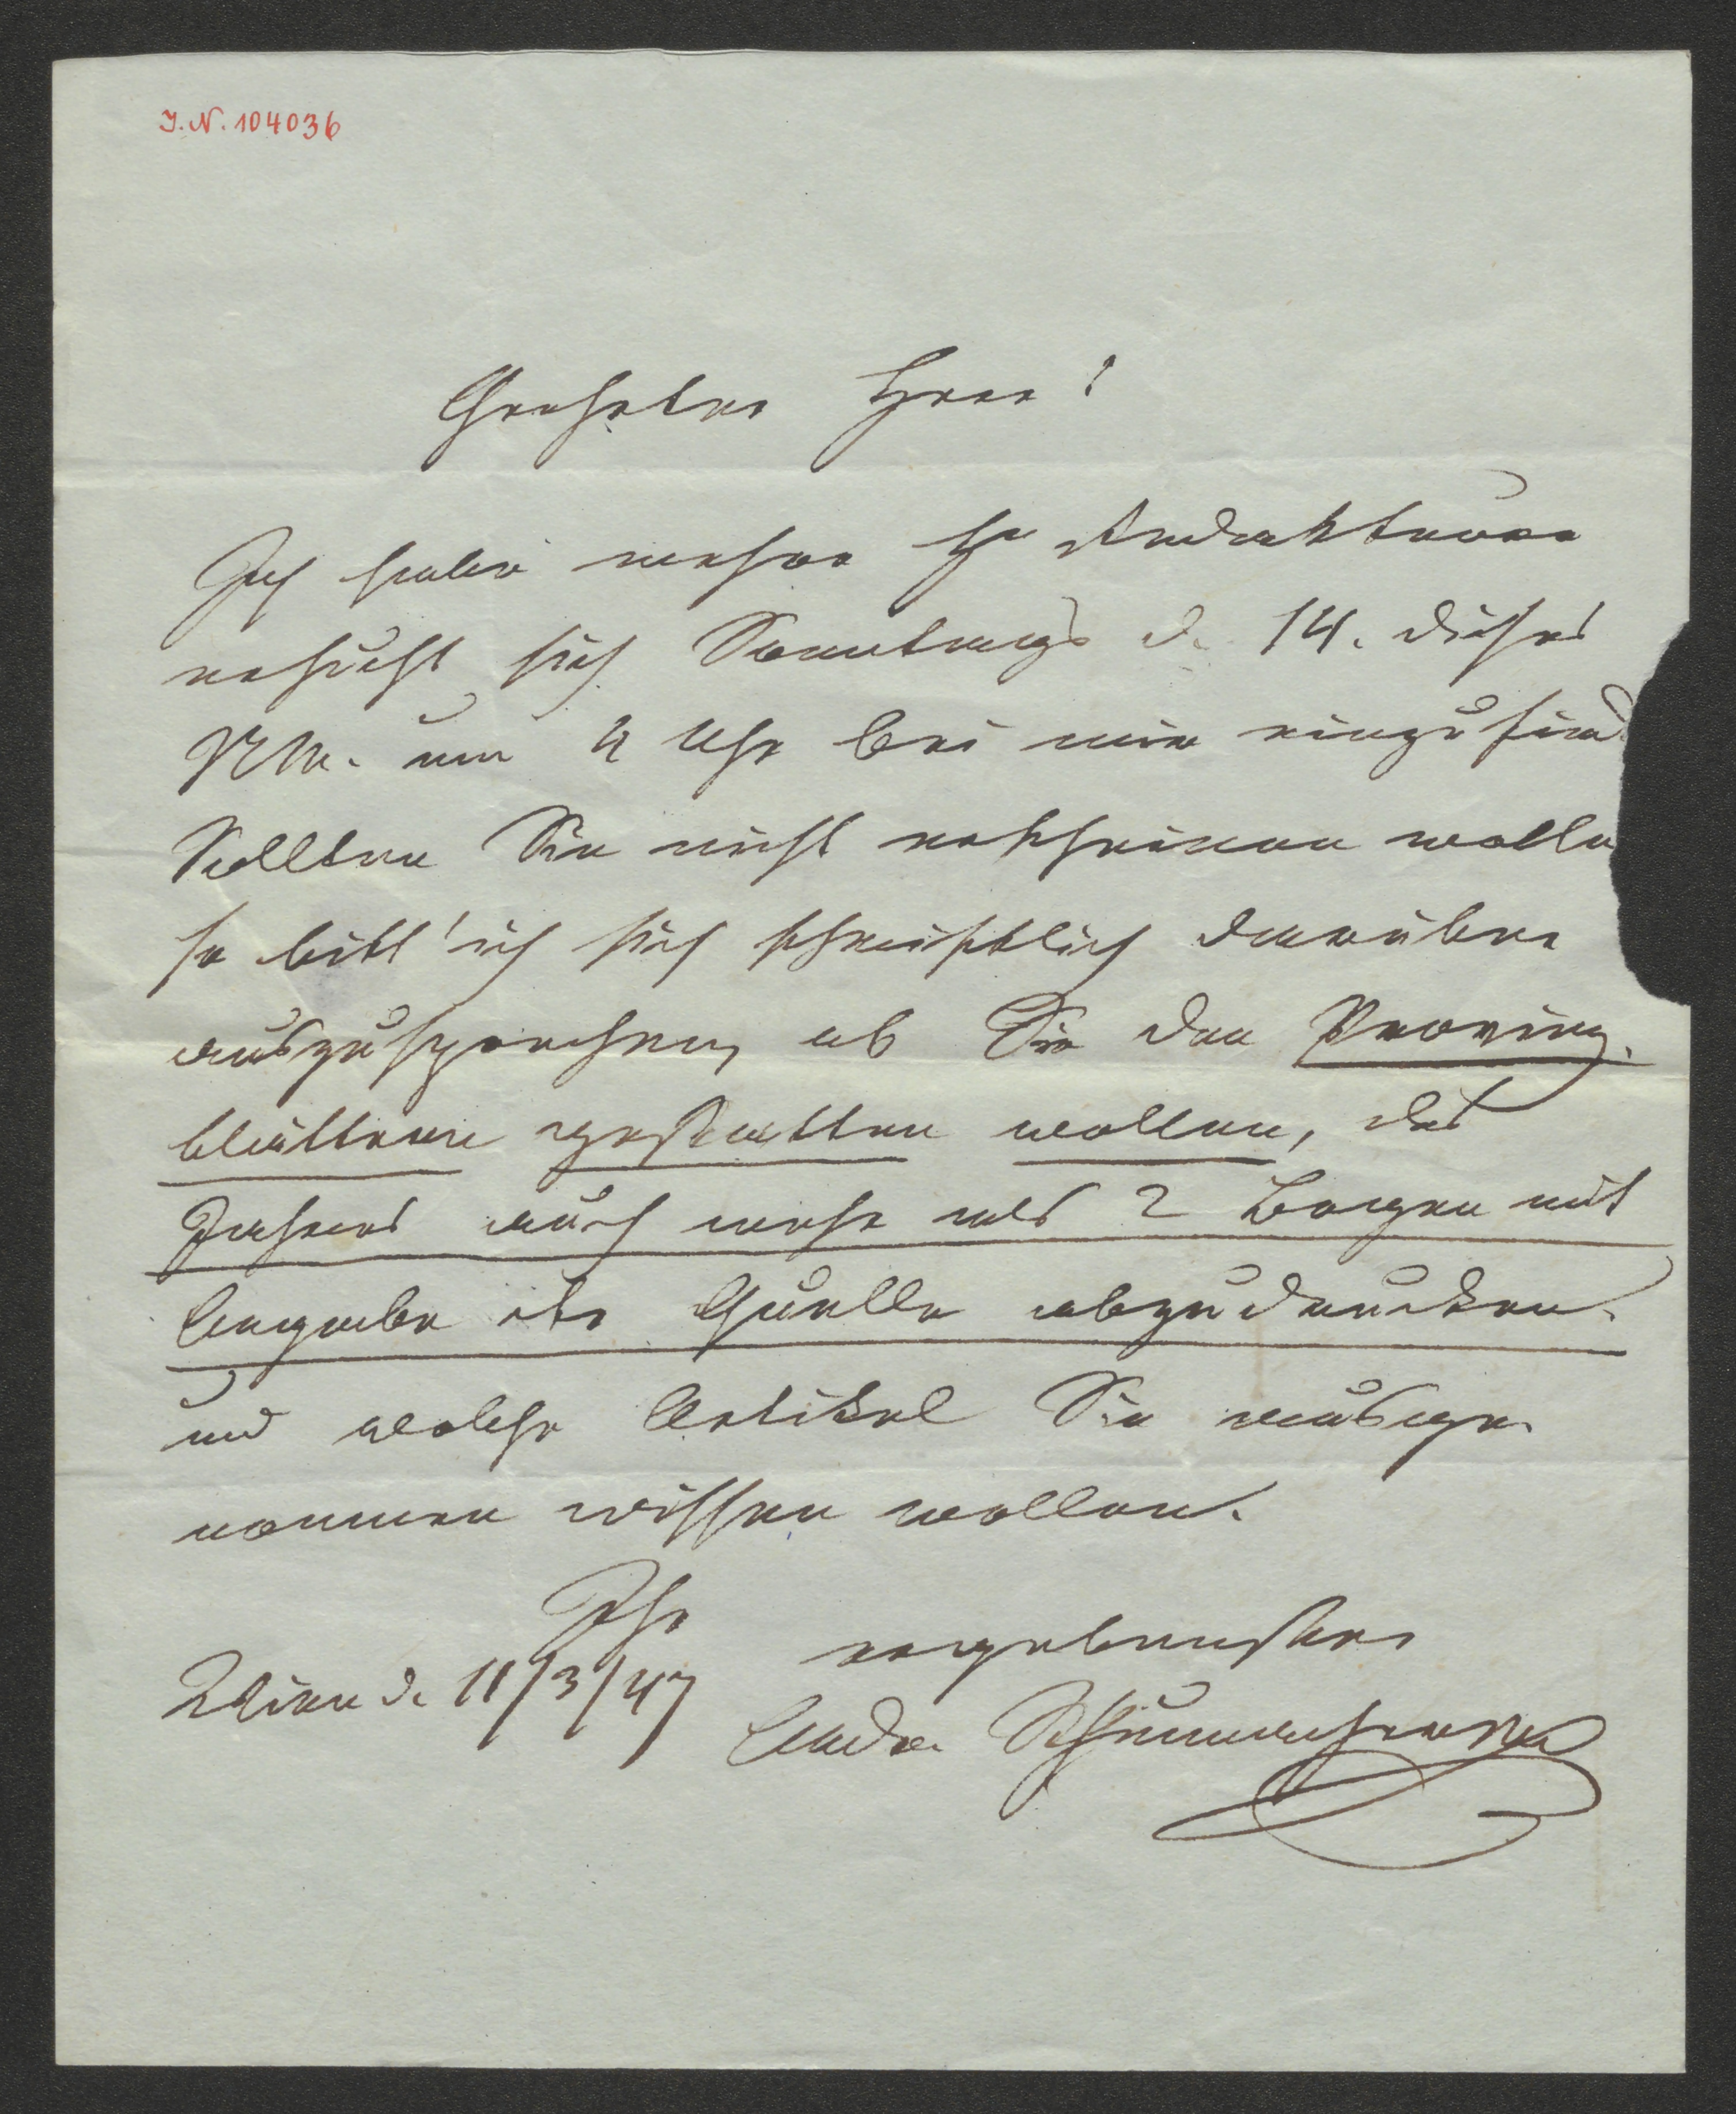 J.N. 104036
Geehrter Herr!
Ich habe mehre H Redakteure
ersucht sich Sonntags d. 14. dieses
NM. um 4 Uhr bei mir einzufind
Sollten Sie nicht erscheinen wolle
so bitt' ich sich schriftlich darüber
auszusprechen, ob Sie den Provinz-
blättern gestatten wollen, des
Jahres auch mehr als 2 Bogen mit
Angabe der Quelle abzudrucken.
und welche Artikel Sie ausge-
nommen wissen wollen.
Ihr
ergebenster
Wien d. 11/3/47
Andr. Schumacher